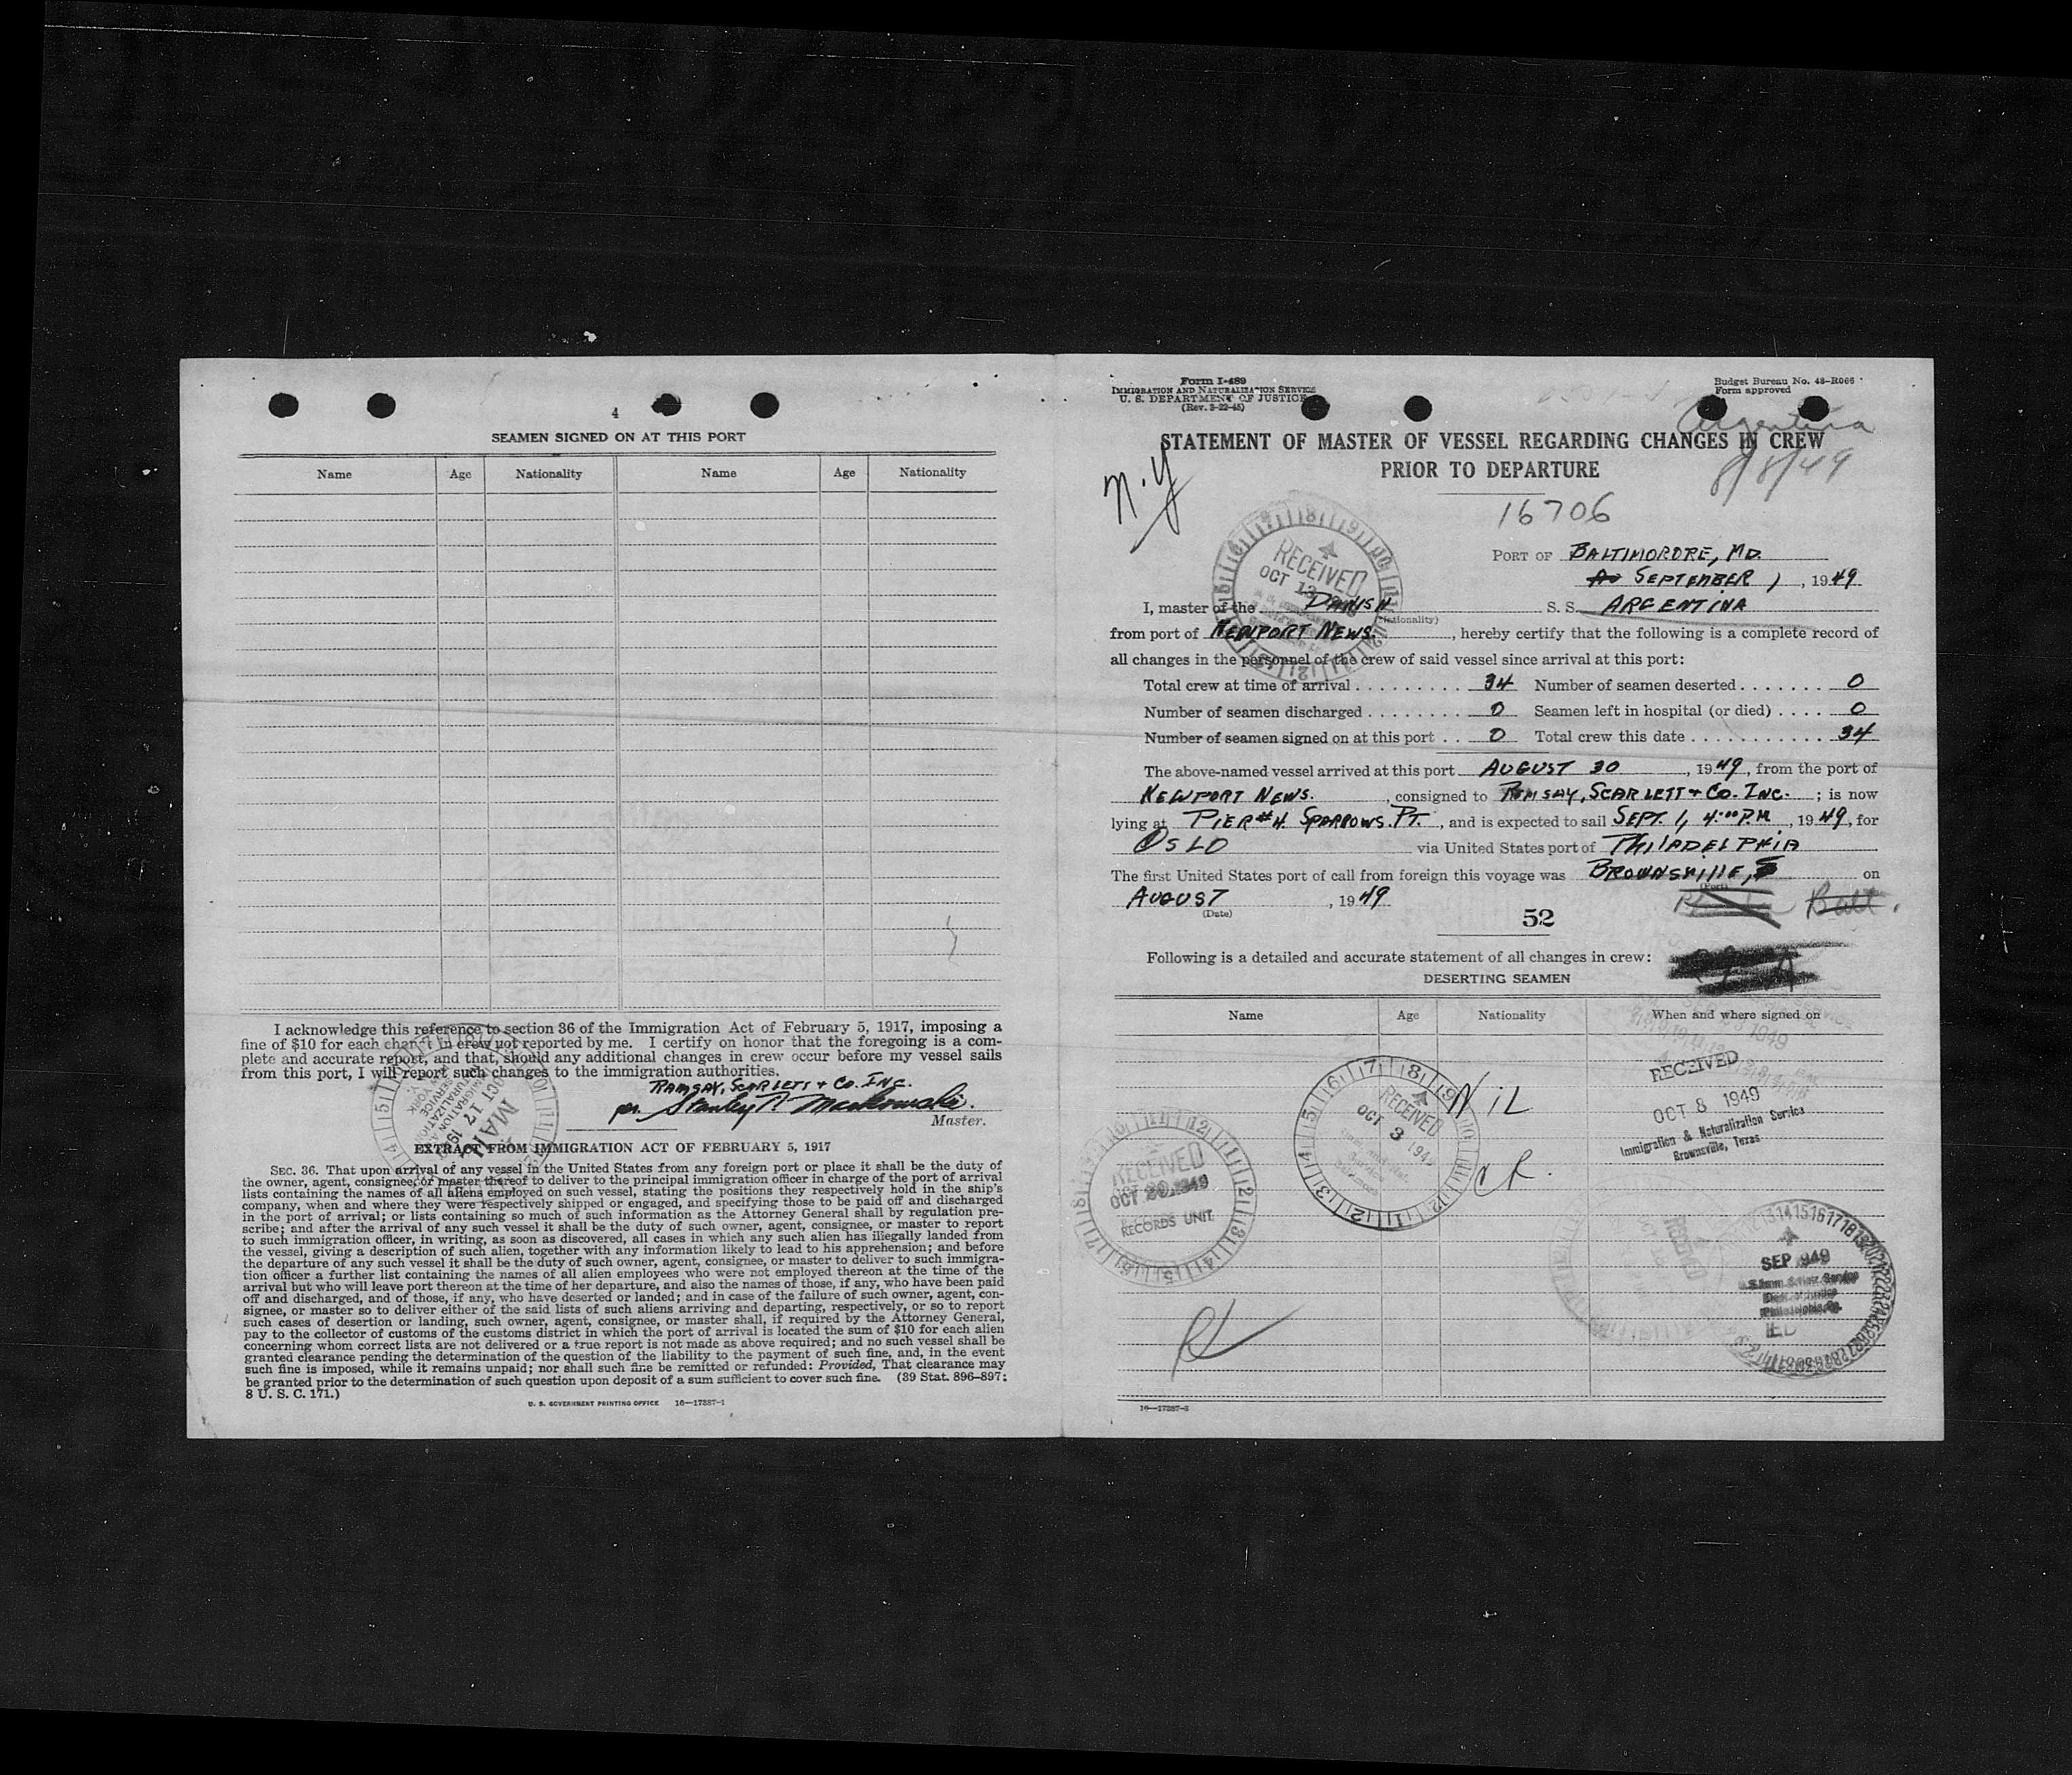 4
SEAMEN SIGNED ON AT THIS PORT
Name Age Nationality Name Age Nationality
I acknowledge this reference to section 36 of the Immigration Act of February 5, 1917, imposing a
fine of $10 for each change in crew not reported by me. I certify on honor that the foregoing is a com-
plete and accurate report, and that, should any additional changes in crew occur before my vessel sails
from this port, I will report such changes to the immigration authorities.
RAMSAY, SCARLETT + CO. INC.
per. Stanley P. Markowski.
Master.
EXTRACT FROM IMMIGRATION ACT OF FEBRUARY 5, 1917
SEC. 36. That upon arrival of any vessel in the United States from any foreign port or place it shall be the duty of
the owner, agent, consignee, or master thereof to deliver to the principal immigration officer in charge of the port of arrival
lists containing the names of all aliens employed on such vessel, stating the positions they respectively hold in the ship's
company, when and where they were respectively shipped or engaged, and specifying those to be paid off and discharged
in the port of arrival; or lists containing so much of such information as the Attorney General shall by regulation pre-
scribe; and after the arrival of any such vessel it shall be the duty of such owner, agent, consignee, or master to report
to such immigration officer, in writing, as soon as discovered, all cases in which any such alien has illegally landed from
the vessel, giving a description of such alien, together with any information likely to lead to his apprehension; and before
the departure of any such vessel it shall be the duty of such owner, agent, consignee, or master to deliver to such immigra-
tion officer a further list containing the names of all alien employees who were not employed thereon at the time of the
arrival but who will leave port thereon at the time of her departure, and also the names of those, if any, who have been paid
off and discharged, and of those, if any, who have deserted or landed; and in case of the failure of such owner, agent, con-
signee, or master so to deliver either of the said lists of such aliens arriving and departing, respectively, or so to report
such cases of desertion or landing, such owner, agent, consignee, or master shall, if required by the Attorney General,
pay to the collector of customs of the customs district in which the port of arrival is located the sum of $10 for each alien
concerning whom correct lists are not delivered or a true report is not made as above required; and no such vessel shall be
granted clearance pending the determination of the question of the liability to the payment of such fine, and, in the event
such fine is imposed, while it remains unpaid; nor shall such fine be remitted or refunded: Provided, That clearance may
be granted prior to the determination of such question upon deposit of a sum sufficient to cover such fine. (39 Stat. 896-897;
8 U. S. C. 171.)
U. S. GOVERNMENT PRINTING OFFICE 16—17387-1
Form I-489
IMMIGRATION AND NATURALIZATION SERVICE
U. S. DEPARTMENT OF JUSTICE
(Rev. 3-22-45)
Budget Bureau No. 43-R066
Form approved
Argentina
8/8/49
STATEMENT OF MASTER OF VESSEL REGARDING CHANGES IN CREW
PRIOR TO DEPARTURE
N.Y
16706
RECEIVED
OCT 13 1949
PORT OF BALTIMORDRE, MD.
SEPTEMBER 1, 1949
I, master of the DANISH S. S. ARGENTINA
(Nationality)
from port of NEWPORT NEWS., hereby certify that the following is a complete record of
all changes in the personnel of the crew of said vessel since arrival at this port:
Total crew at time of arrival . . . . . . . . . . 34 Number of seamen deserted . . . . . . . 0
Number of seamen discharged . . . . . . . . 0 Seamen left in hospital (or died) . . . . 0
Number of seamen signed on at this port . . 0 Total crew this date . . . . . . . . . . . . 34
The above-named vessel arrived at this port AUGUST 30, 1949, from the port of
NEWPORT NEWS., consigned to RAMSAY, SCARLETT + CO. INC. ; is now
lying at PIER #4. SPARROWS. PT., and is expected to sail SEPT. 1, 4:00 P.M., 1949, for
OSLO via United States port of PHILADELPHIA
The first United States port of call from foreign this voyage was BROWNSVILLE, on
(Port)
AUGUST, 1949
(Date)
Balt.
52
Following is a detailed and accurate statement of all changes in crew:
DESERTING SEAMEN
Name Age Nationality When and where signed on
NIL
RECEIVED
OCT 3 1949
RECEIVED
OCT 8 1949
Immigration & Naturalization Service
Brownsville, Texas
RECEIVED
OCT 20 1949
RECORDS UNIT
SEP 1949
Philadelphia, Pa.
16—17387-2